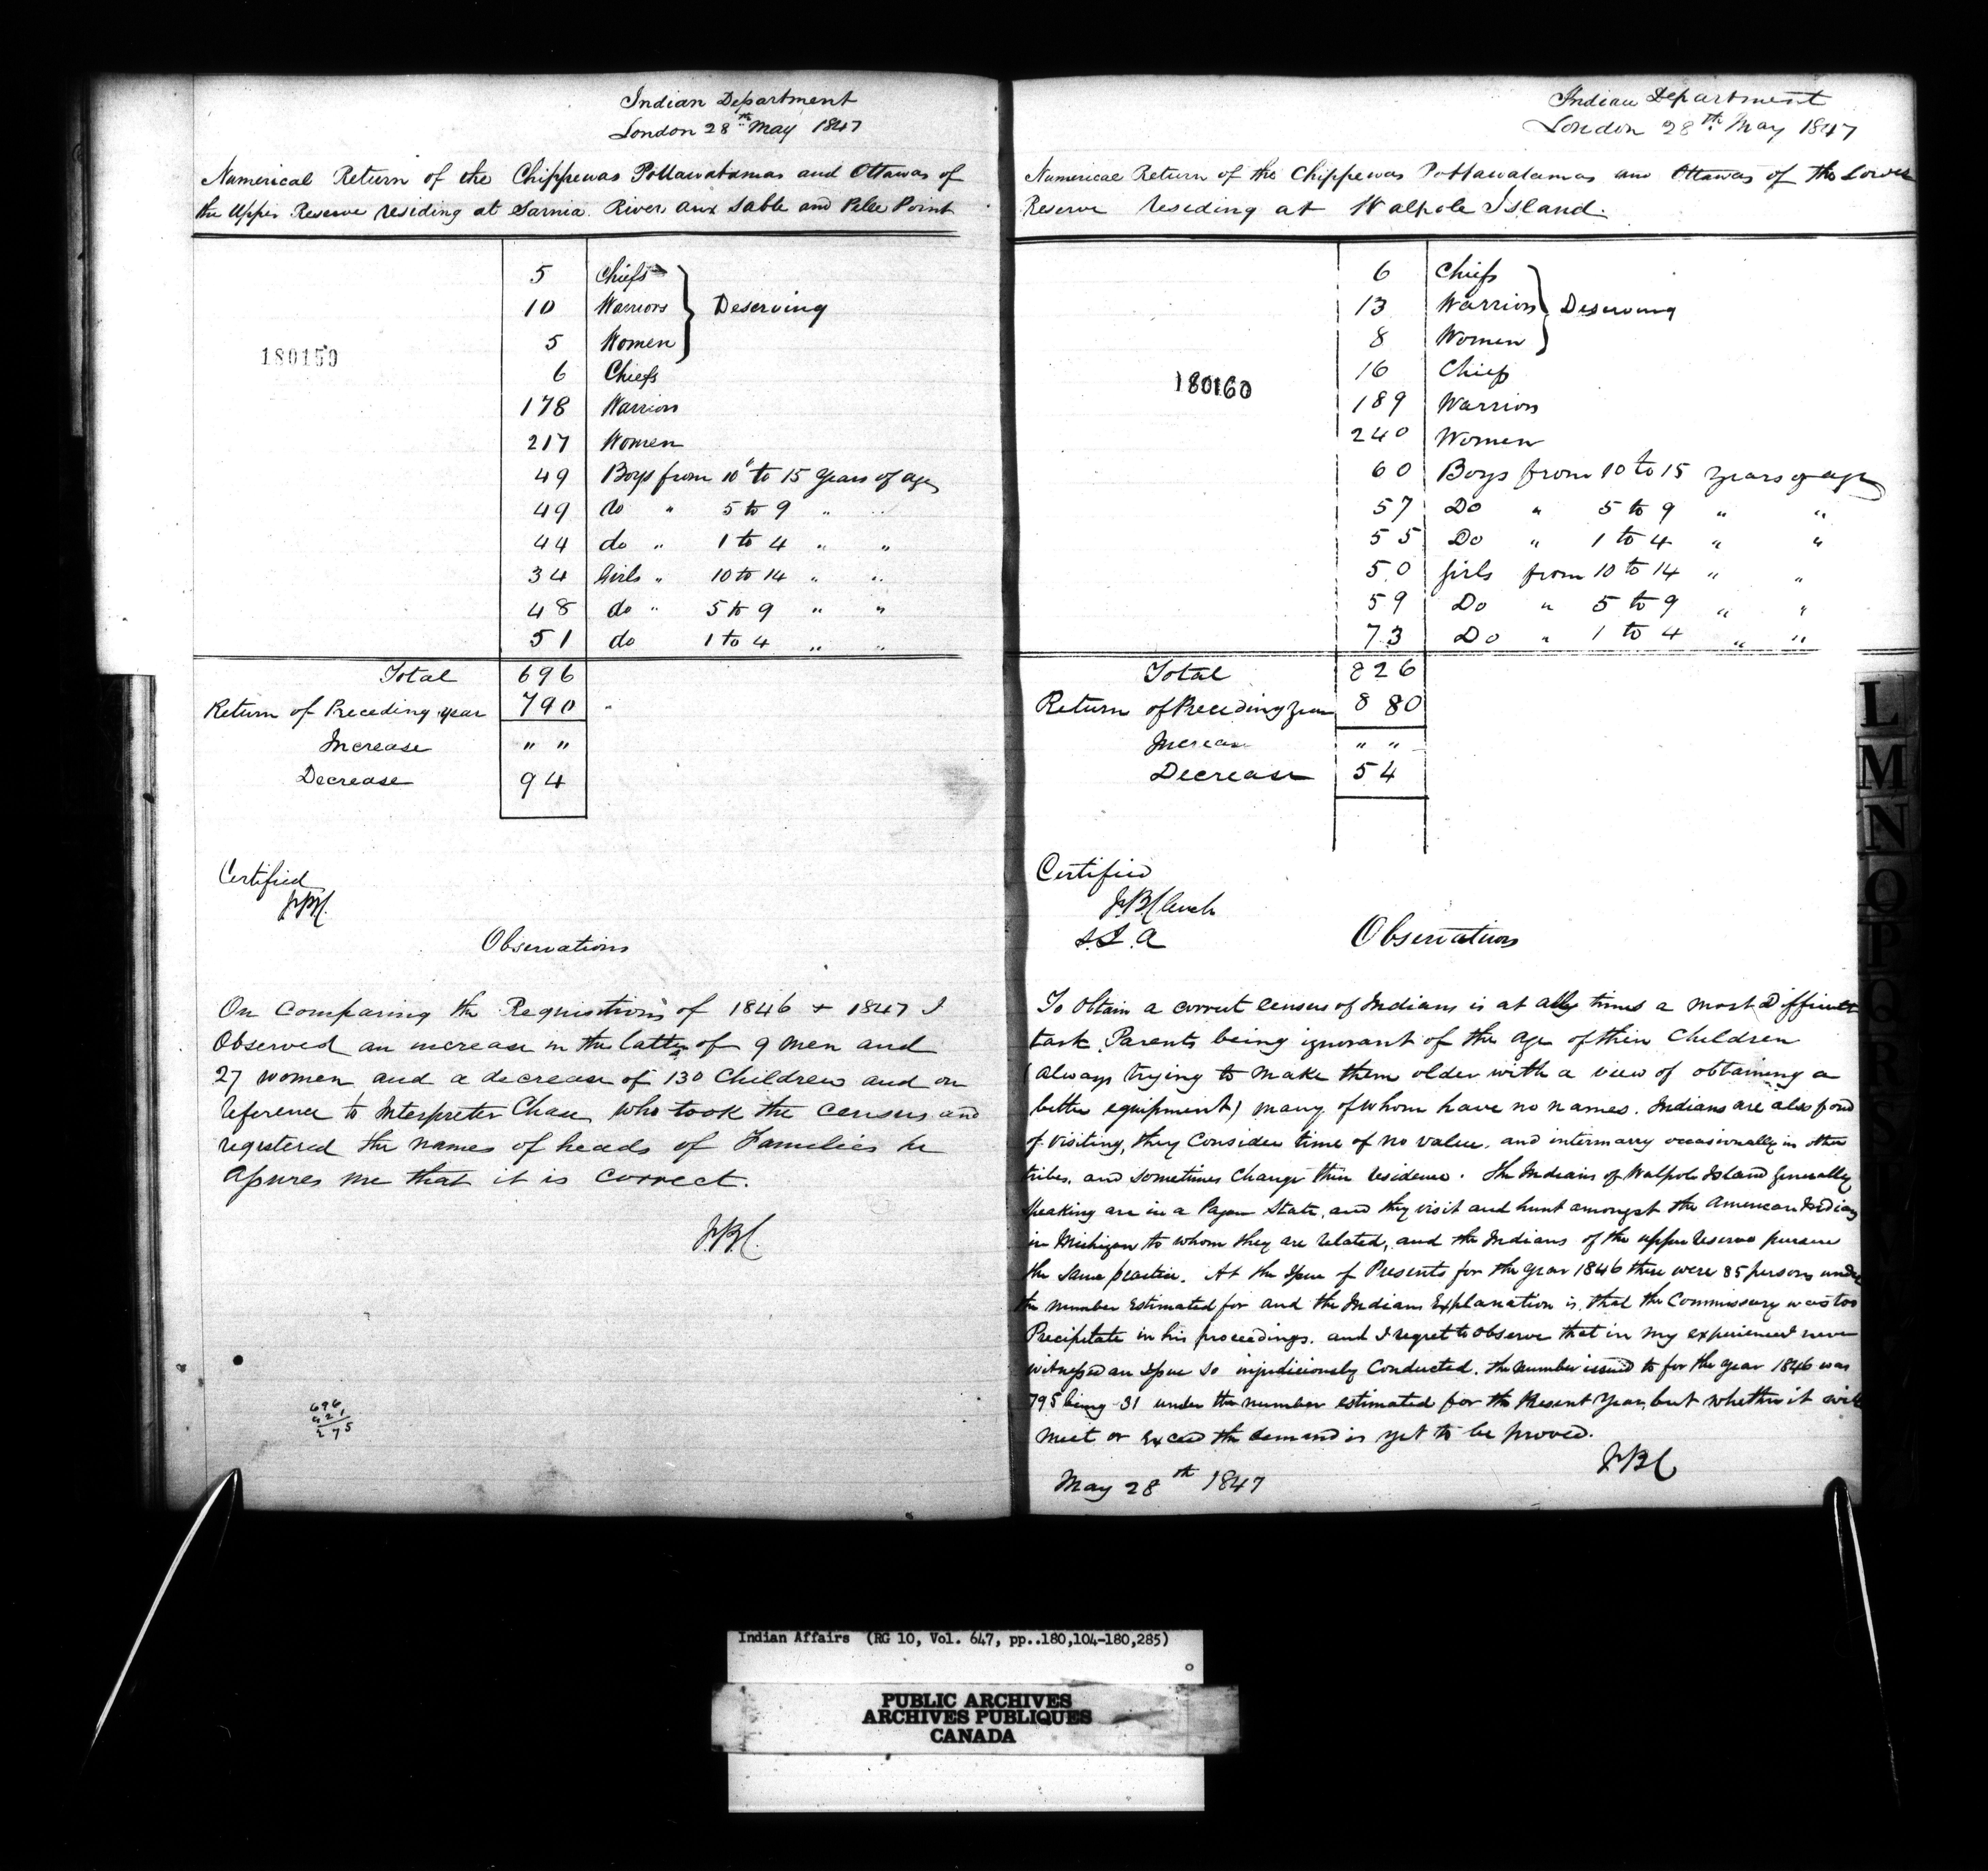 Indian Department
London 28th May 1847
Numerical Return of the Chippewas Pottawatamas and Ottawas of
the Upper Reserve residing at Sarnia River aux Sable and Pelee Point
180150
5 Chiefs
10 Warriors } Deserving
5 Women
6 Chiefs
178 Warriors
217 Women
49 Boys from 10 to 15 Years of age
49 do " 5 to 9 " "
44 do " 1 to 4 " "
34 Girls " 10 to 14 " "
48 do " 5 to 9 " "
51 do 1 to 4 " "
Total 696
Return of Preceding year 790
Increase " "
Decrease 94
Certified
JBC
Observations
On comparing the Requisitions of 1846 + 1847 I
Observed an increase in the latter of 9 men and
27 women and a decrease of 130 Children and on
reference to Interpreter Chase who took the census and
registered the names of heads of Families he
assures me that it is correct.
JBC
696
421
275
Indian Department
London 28th May 1847
Numerical Return of the Chippewas Pottawatamas and Ottawas of the Lower
Reserve residing at Walpole Island.
180160
6 Chiefs
13 Warriors } Deserving
8 Women
16 Chiefs
189 Warriors
240 Women
60 Boys from 10 to 15 years of age
57 Do " 5 to 9 " "
55 Do " 1 to 4 " "
50 Girls from 10 to 14 " "
59 Do " 5 to 9 " "
73 Do " 1 to 4 " "
Total 826
Return of Preceding year 880
Increase " "
Decrease 54
Certified
JBClench
S.I.A
Observations
To Obtain a correct census of Indians is at all times a most difficult
task. Parents being ignorant of the age of their Children
(always trying to make them older with a view of obtaining a
better equipment) many of whom have no names. Indians are also fond
of visiting, they consider time of no value, and intermarry occasionally in other
tribes, and sometimes change their residence. The Indians of Walpole Island generally
speaking are in a Pagan State, and they visit and hunt amongst the American Indians
in Michigan to whom they are related, and the Indians of the upper reserve pursue
the same practice. At the Issue of Presents for the year 1846 there were 85 persons under
the number Estimated for and the Indians Explanation is, that the Commissary was too
Precipitate in his proceedings. and I regret to observe that in my experience I never
witnessed an Issue so injudiciously Conducted. the number issued to for the year 1846 was
795 being 31 under the number estimated for the Present Year, but whether it will
meet or exceed the demand is yet to be proved.
JBC
May 28th 1847
L
M
N
O
P
Q
R
S
Indian Affairs (RG 10, Vol. 647, pp..180,104-180,285)
PUBLIC ARCHIVES
ARCHIVES PUBLIQUES
CANADA